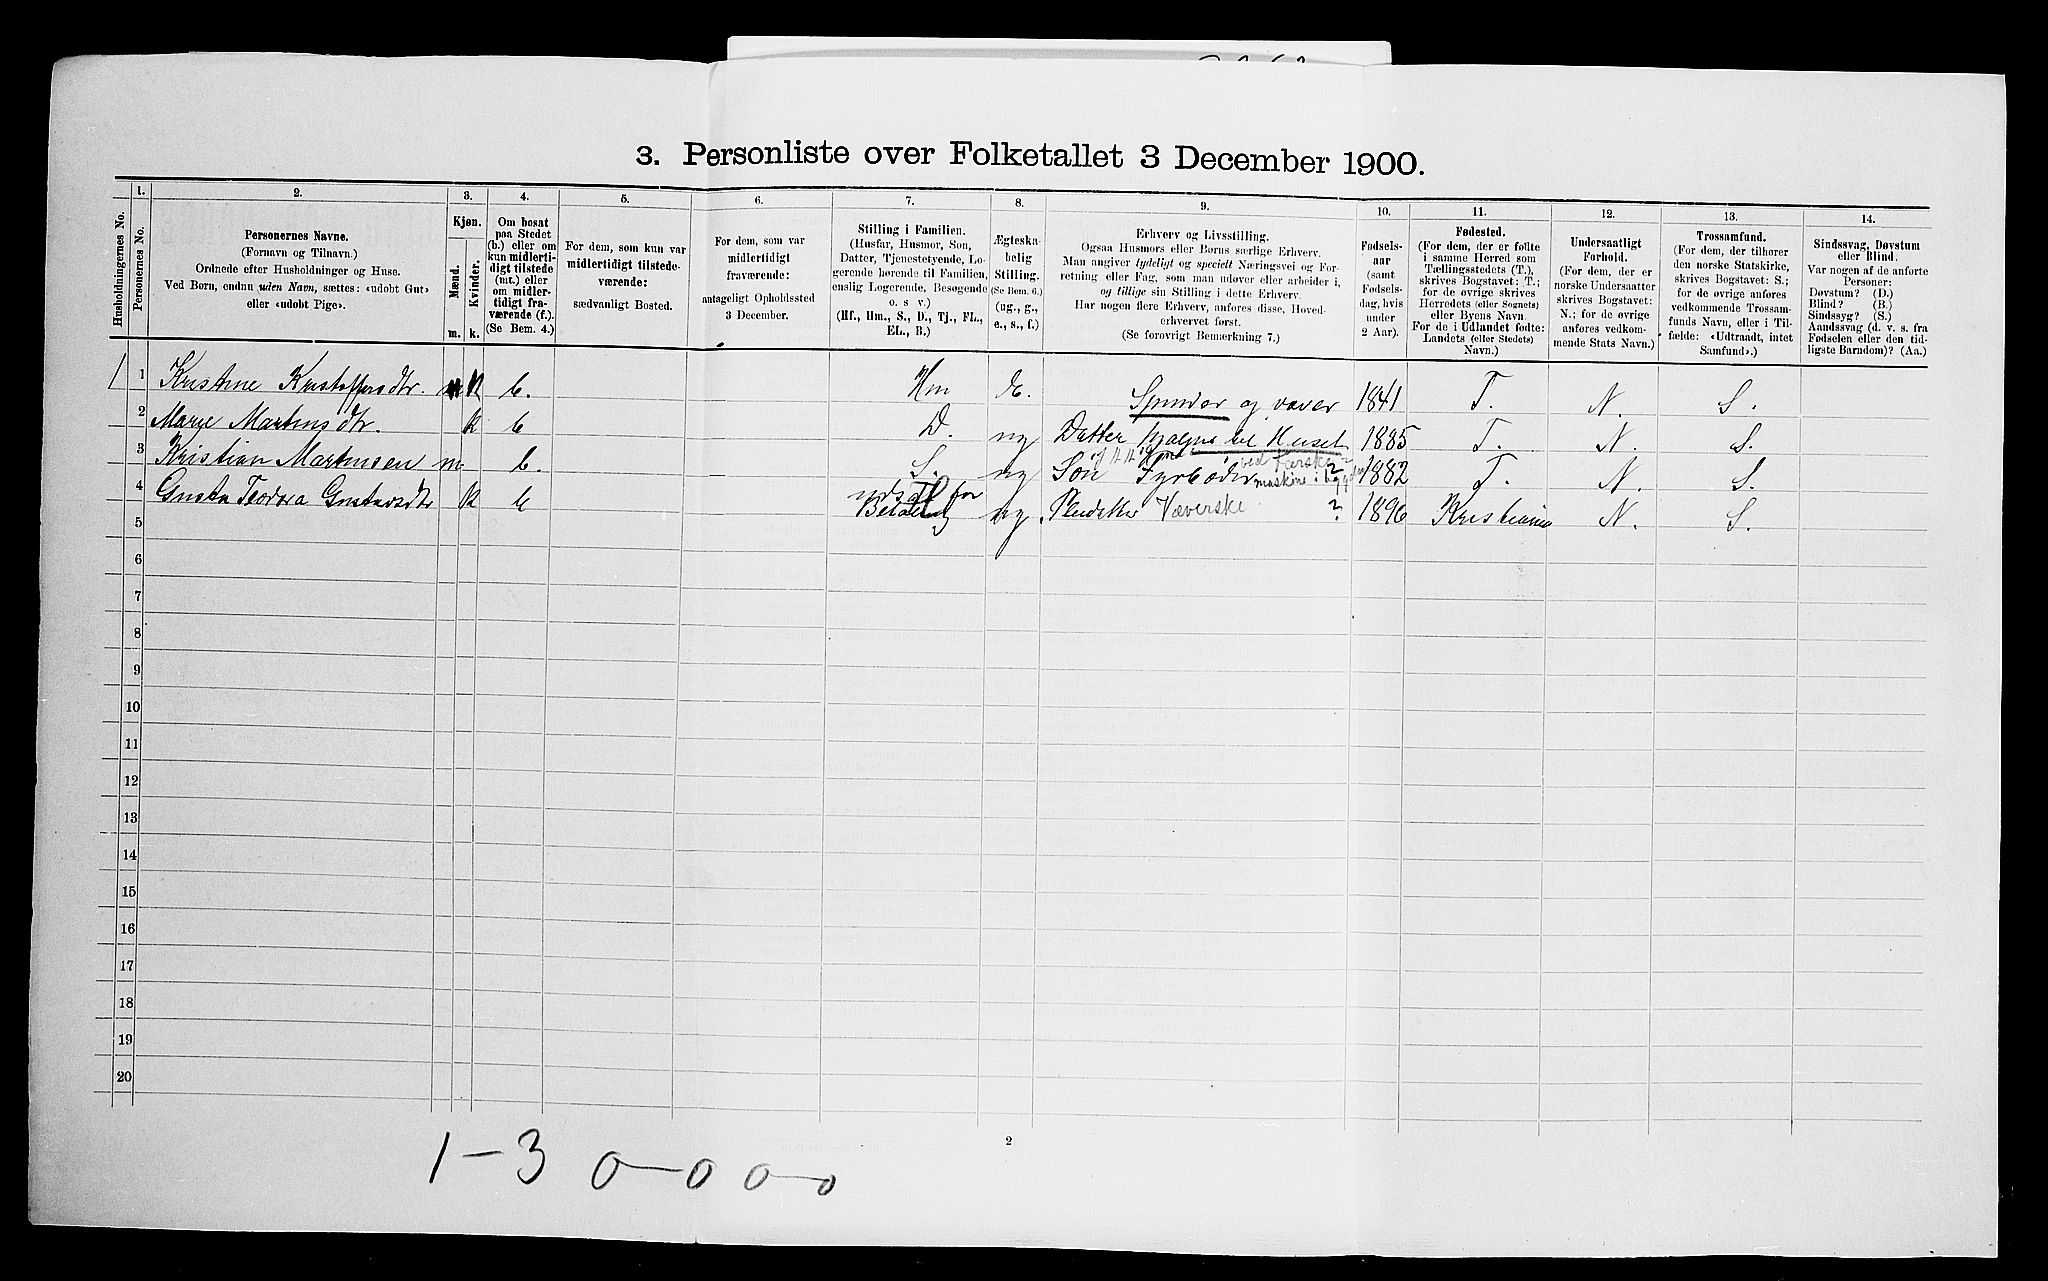 3. Personliste over Folketallet 3 December 1900.
1. 2. 3. 4. 5. 6. 7. 8. 9. 10. 11. 12. 13. 14.
Husholdningernes No.
Personernes No.
Personernes Navne.
(Fornavn og Tilnavn.)
Ordnede efter Husholdninger og Huse.
Ved Børn, endnu uden Navn, sættes: «udobt Gut»
eller «udobt Pige».
Kjøn.
Mænd.
Kvinder.
m. k.
Om bosat
paa Stedet
(b.) eller om
kun midlerti-
digt tilstede
(mt.) eller
om midler-
tidigt fra-
værende (f.).
(Se Bem. 4.)
For dem, som kun var
midlertidigt tilstede-
værende:
sædvanligt Bosted.
For dem, som var
midlertidigt
fraværende:
antageligt Opholdssted
3 December.
Stilling i Familien.
(Husfar, Husmor, Søn,
Datter, Tjenestetyende, Lo-
gerende hørende til Familien,
enslig Logerende, Besøgende
o. s. v.)
(Hf., Hm., S., D., Tj., FL.,
EL., B.)
Ægteska-
belig
Stilling.
(Se Bem. 6.)
(ug., g.,
e., s., f.)
Erhverv og Livsstilling.
Ogsaa Husmors eller Børns særlige Erhverv.
Man angiver tydeligt og specielt Næringsvei og For-
retning eller Fag, som man udøver eller arbeider i,
og tillige sin Stilling i dette Erhverv.
Har nogen flere Erhverv, anføres disse, Hoved-
erhvervet først.
(Se forøvrigt Bemærkning 7.)
Fødsels-
aar
(samt
Fødsels-
dag, hvis
under
2 Aar).
Fødested.
(For dem, der er fødte
i samme Herred som
Tællingsstedets (T.),
skrives Bogstavet: T.;
for de øvrige skrives
Herredets (eller Sognets)
eller Byens Navn.
For de i Udlandet fødte:
Landets (eller Stedets)
Navn.)
Undersaatligt
Forhold.
(For dem, der er
norske Undersaatter
skrives Bogstavet:
N.; for de øvrige
anføres vedkom-
mende Stats Navn.)
Trossamfund.
(For dem, der tilhører
den norske Statskirke,
skrives Bogstavet: S.;
for de øvrige anføres
vedkommende Trossam-
funds Navn, eller i Til-
fælde: «Udtraadt, intet
Samfund».)
Sindssvag, Døvstum
eller Blind.
Var nogen af de anførte
Personer:
Døvstum? (D.)
Blind? (B.)
Sindssyg? (S.)
Aandssvag (d. v. s. fra
Fødselen eller den tid-
ligste Barndom)? (Aa.)
1 1 Kristine Kristoffersdtr. k b. Hm E. Spinder og væver 1841 T. N. S.
2 Marie Martinsdtr. k b D. ug Datter hjælper til Huset 1885 T. N. S.
3 Kristian Martinsen m. b. S. ug Søn Fyrbøder ved maskine i 1882 T. N. S.
4 Gusta Teodora Gustavsdtr k b udsat for
Betaling ug. Pleiedatter Væverske ? 1896 Kristiania N. S.
5
6
7
8
9
10
11
12
13
14
15
16
17
18
19
20
2
1-3 0-0 0-0